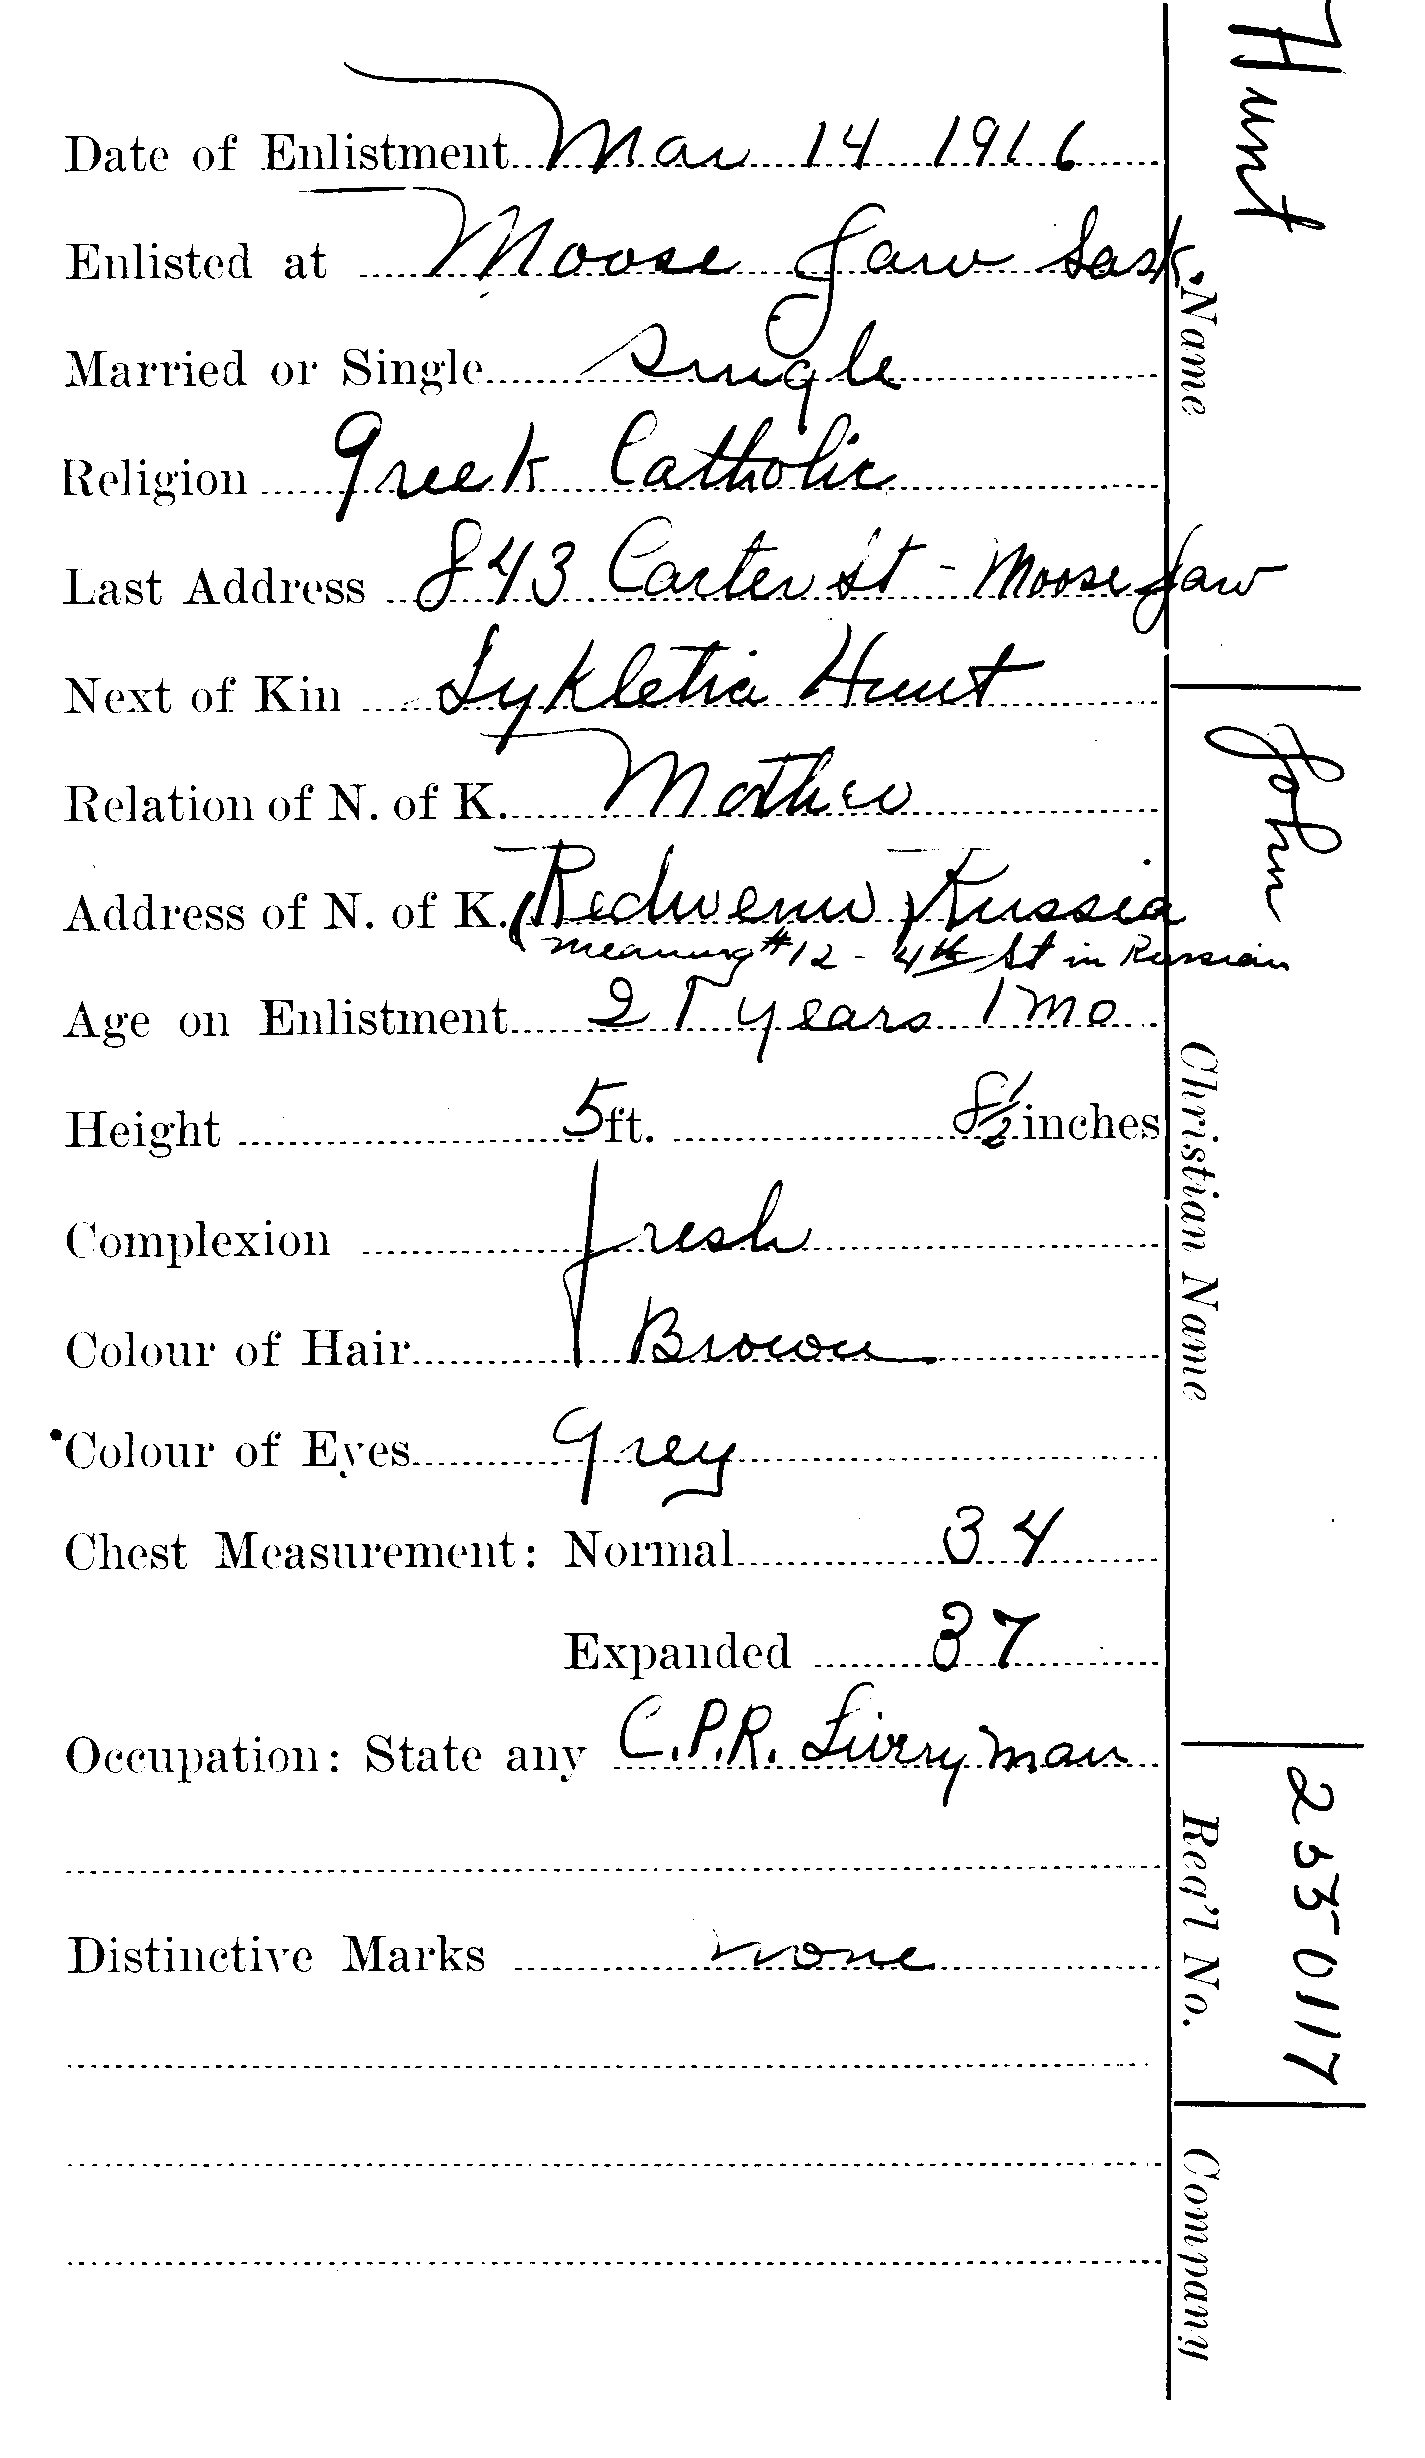 Date of Enlistment Mar 14 1916
Enlisted at Moose Jaw Sask.
Married or Single Single
Religion Greek Catholic
Last Address 843 Carter St - Moose Jaw
Next of Kin Hunt
Relation of N. of K. Mother
Address of N. of K. (Russia
meaning #12 - 4th St in Russian
Age on Enlistment 21 years 1 mo
Height 5 ft. 8 1/2 inches
Complexion fresh
Colour of Hair Brown
Colour of Eyes Grey
Chest Measurement: Normal 34
Expanded 37
Occupation: State any C.P.R.
Distinctive Marks none
Hunt
Name
John
Christian Name
2550117
Reg'l No.
Company